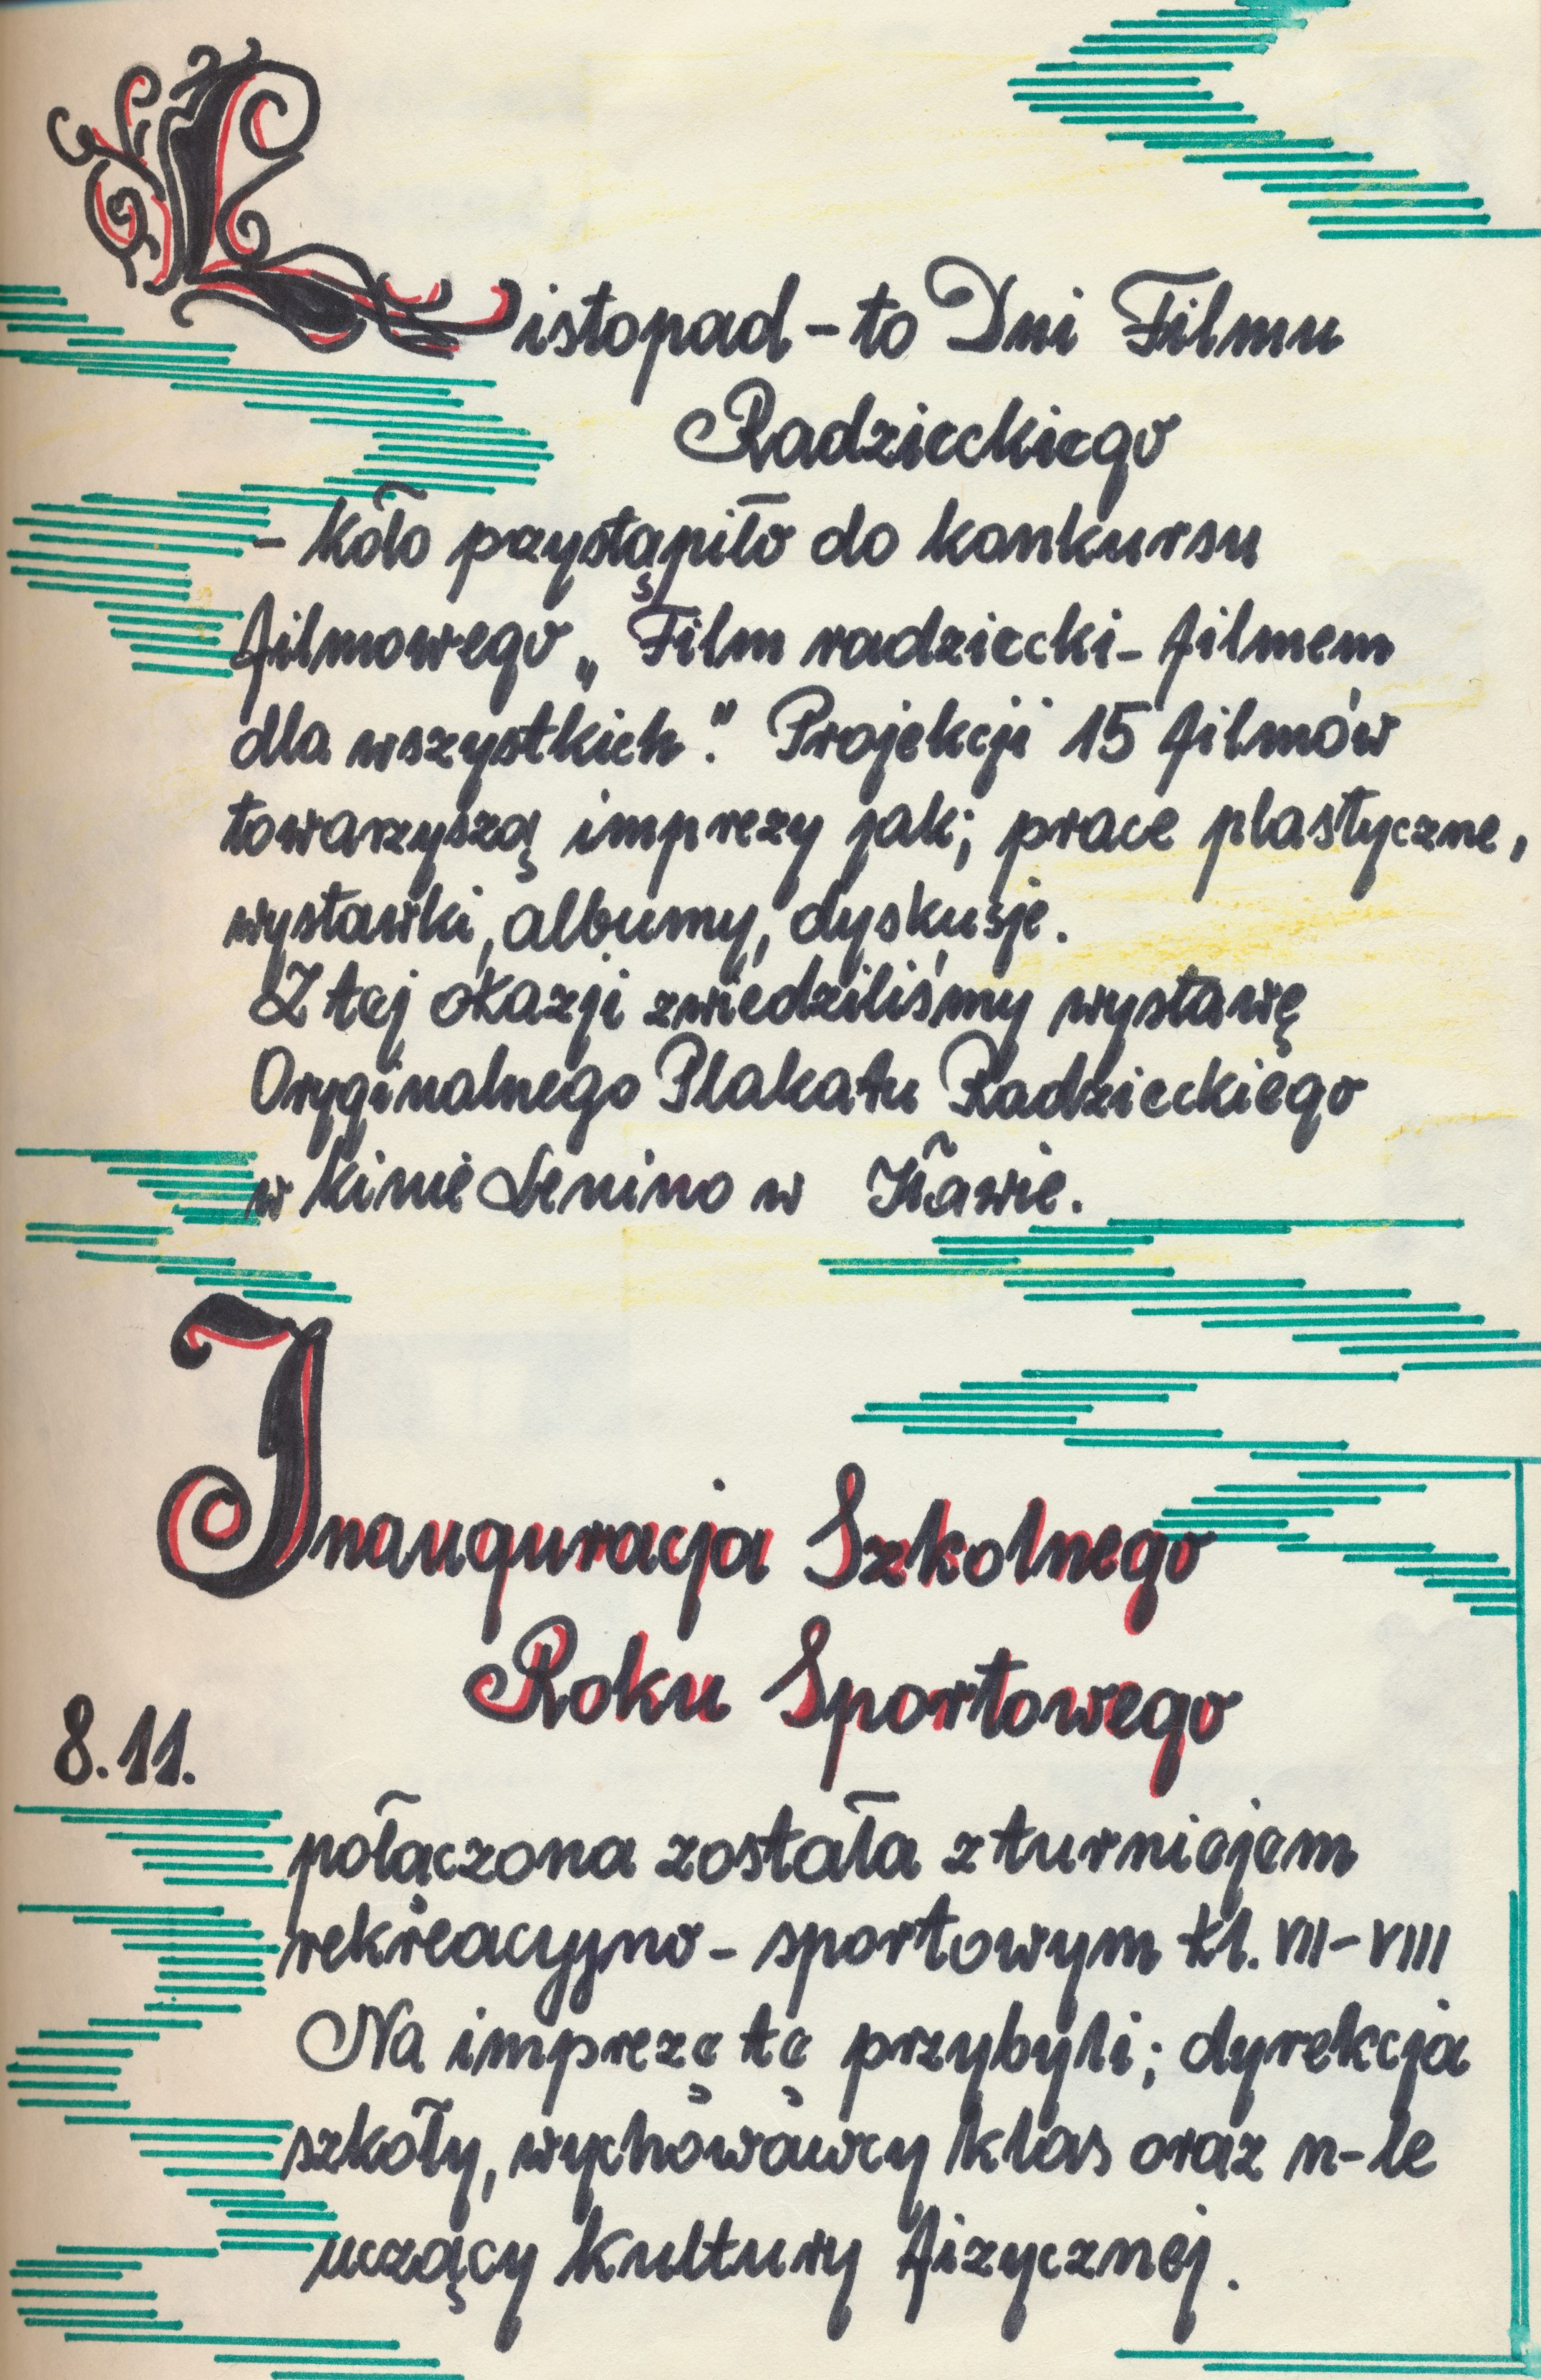 Listopad - to Dni Filmu
Radzieckiego
- koło przystąpiło do konkursu
filmowego „Film radziecki - filmem
dla wszystkich." Projekcji 15 filmów
towarzyszą imprezy jak; prace plastyczne,
wystawki, albumy, dyskusje.
Z tej okazji zwiedziliśmy wystawę
Oryginalnego Plakatu Radzieckiego
w kinie Lenino w Iławie.
Inauguracja Szkolnego
Roku Sportowego
8.11.
połączona została z turniejem
rekreacyjno - sportowym kl. VII - VIII
Na imprezę tę przybyli; dyrekcja
szkoły, wychowawcy klas oraz n-le
uczący kultury fizycznej.